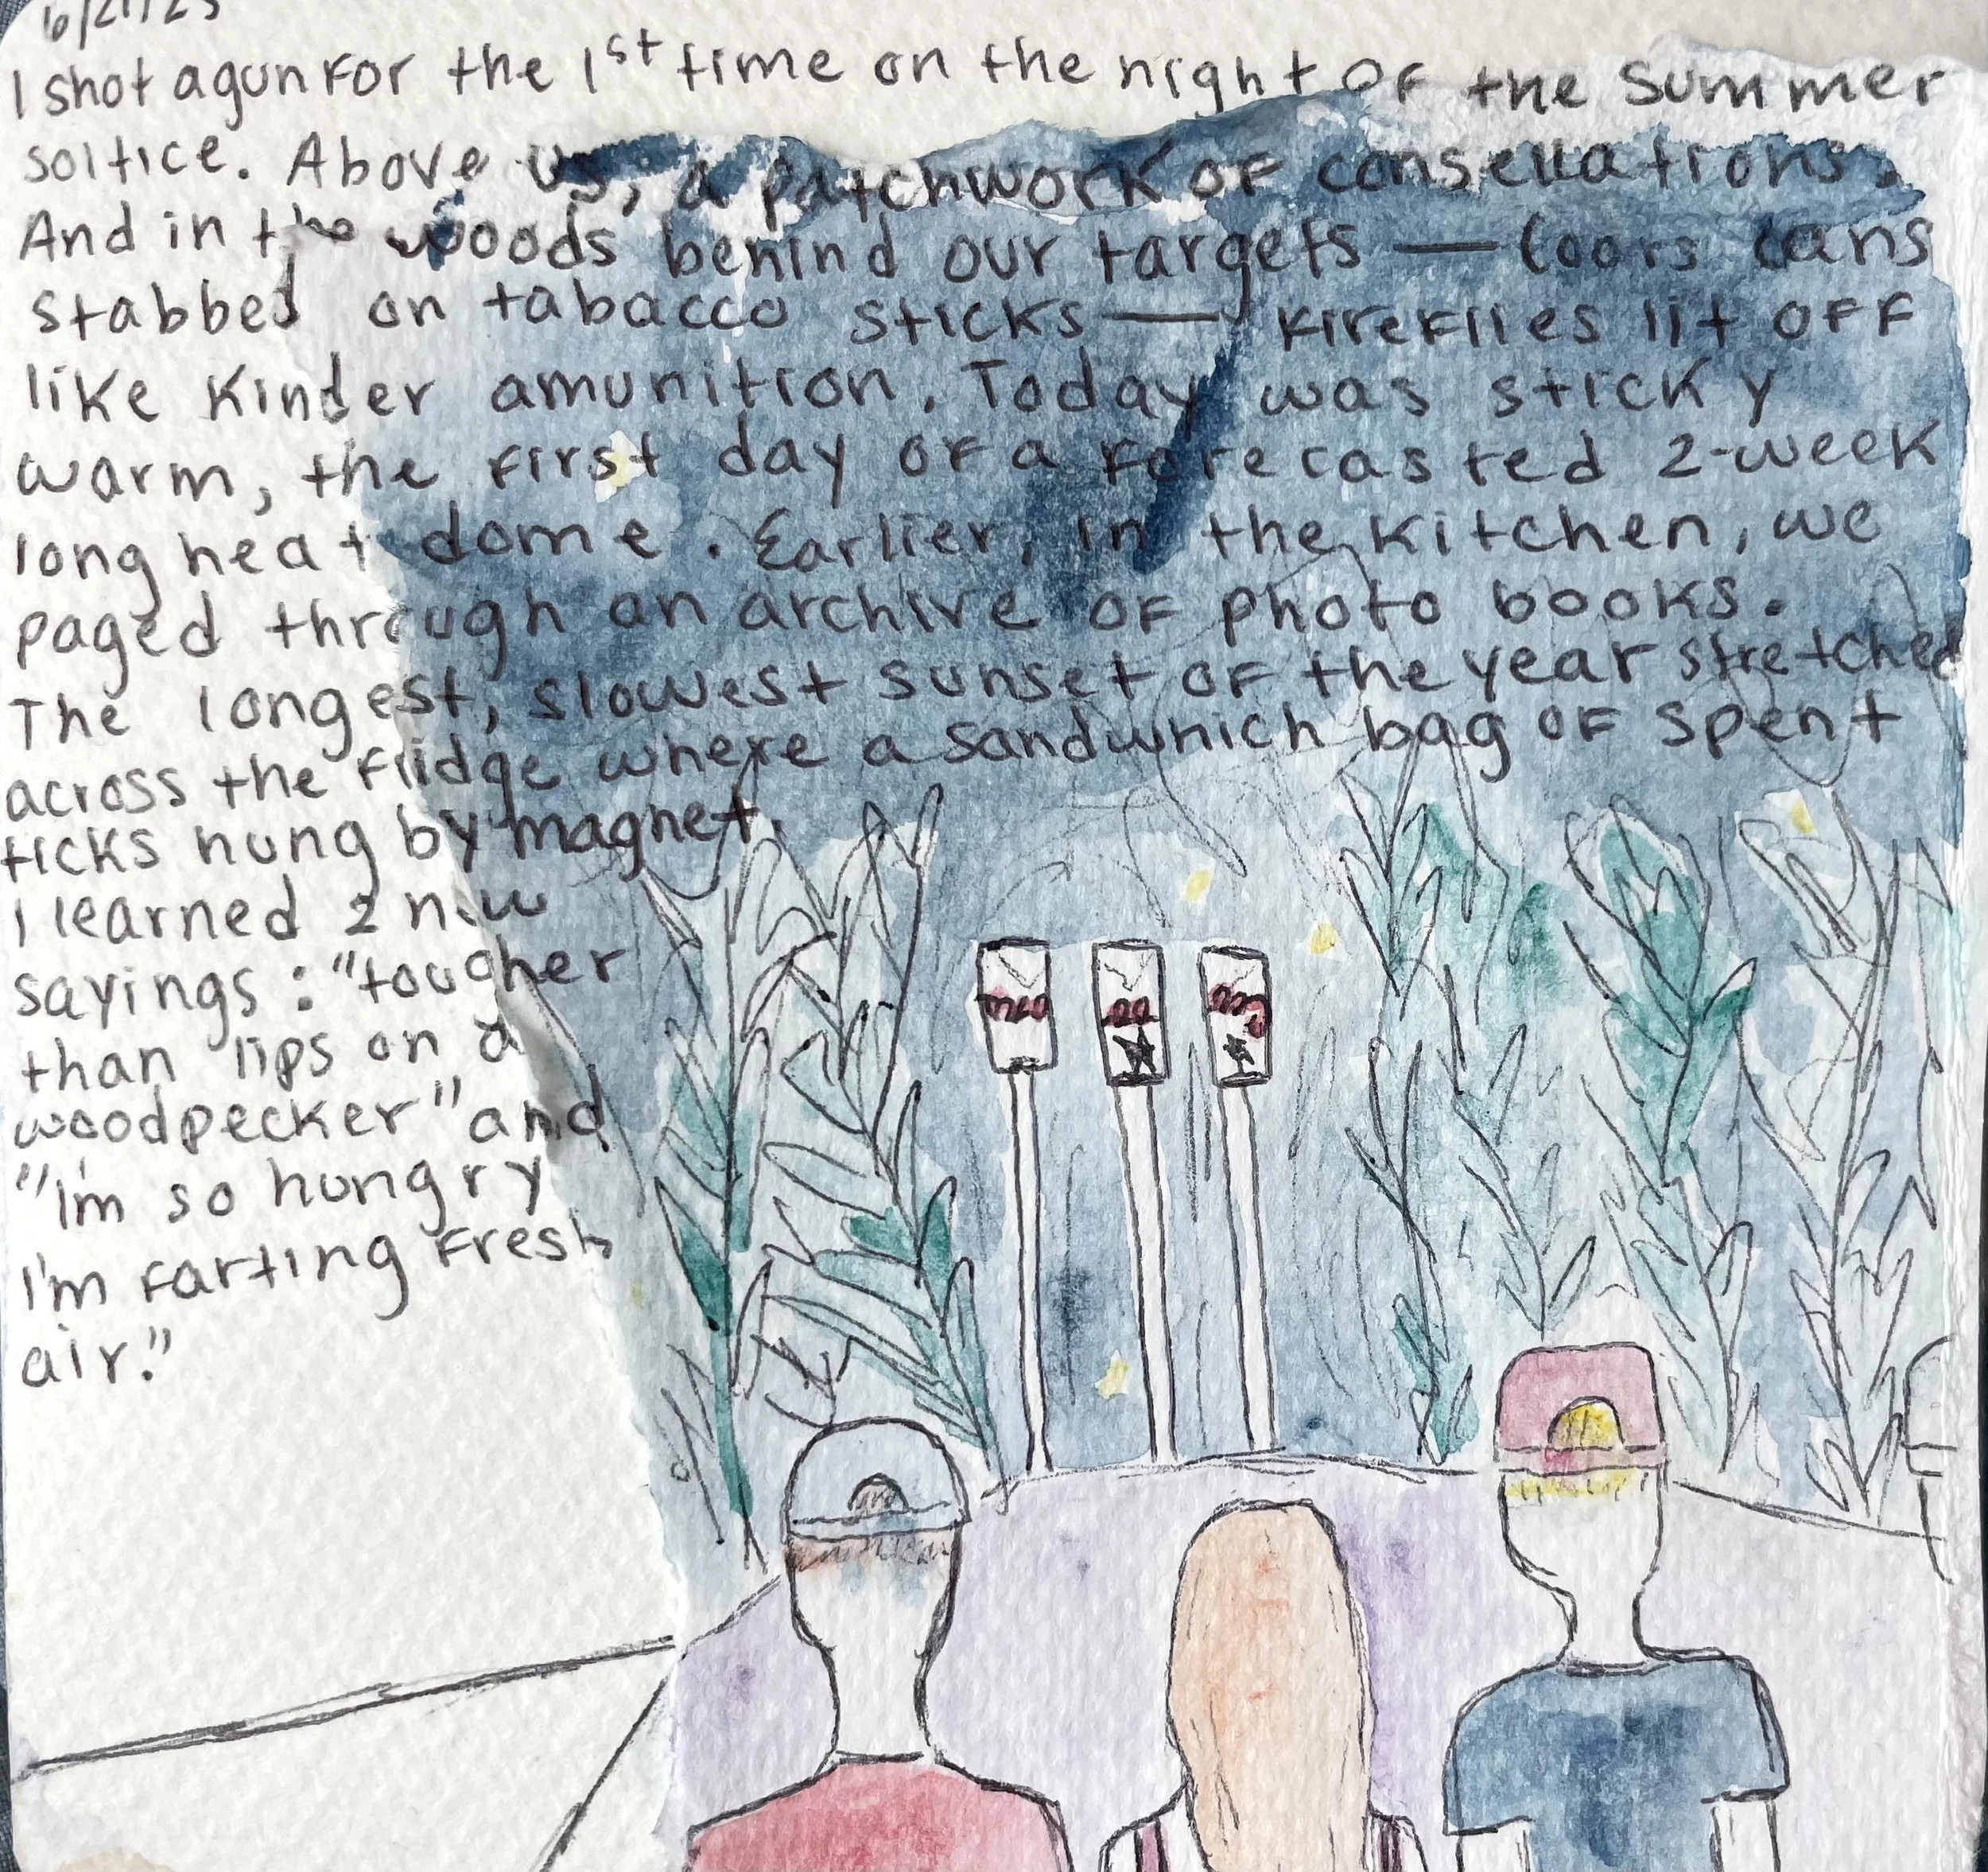 6/21/25
I shot a gun for the 1st time on the night of the summer
soltice. Above us, a patchwork of consellations.
And in the woods behind our targets — Coors cans
stabbed on tabacco sticks — fireflies lit off
like kinder amunition. Today was sticky
warm, the first day of a forecasted 2-week
long heat dome. Earlier, in the kitchen, we
paged through an archive of photo books.
The longest, slowest sunset of the year stretched
across the fridge where a sandwhich bag of spent
ticks hung by magnet.
I learned 2 new
sayings: "tougher
than lips on a
woodpecker" and
"I'm so hungry
I'm farting fresh
air."